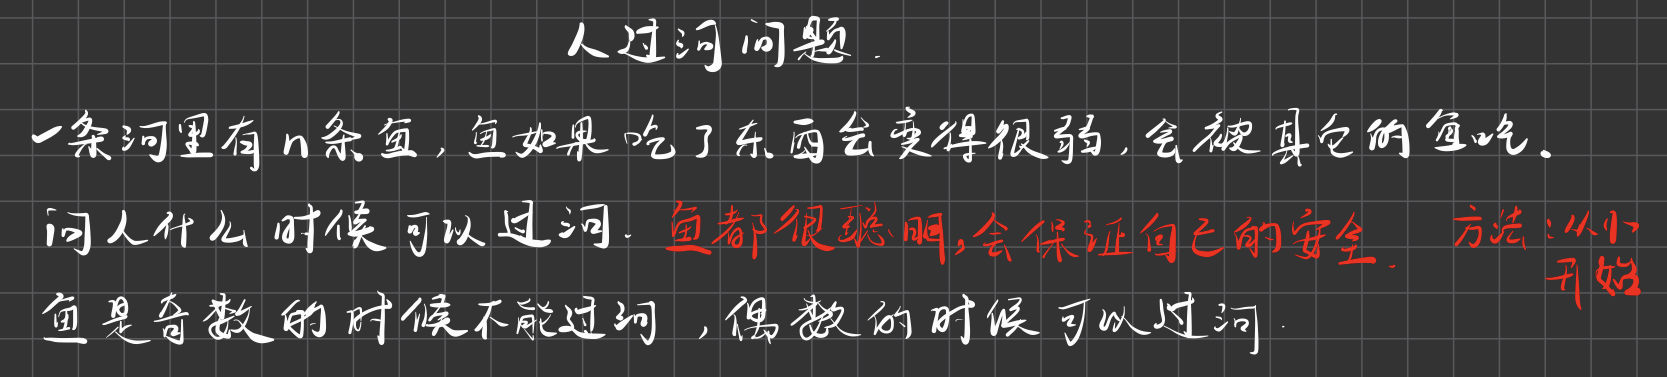 人过河问题.
一条河里有n条鱼,鱼如果吃了东西会变得很弱,会被其它的鱼吃.
问人什么时候可以过河. 鱼都很聪明,会保证自己的安全. 方法:从小
开始
鱼是奇数的时候不能过河,偶数的时候可以过河.